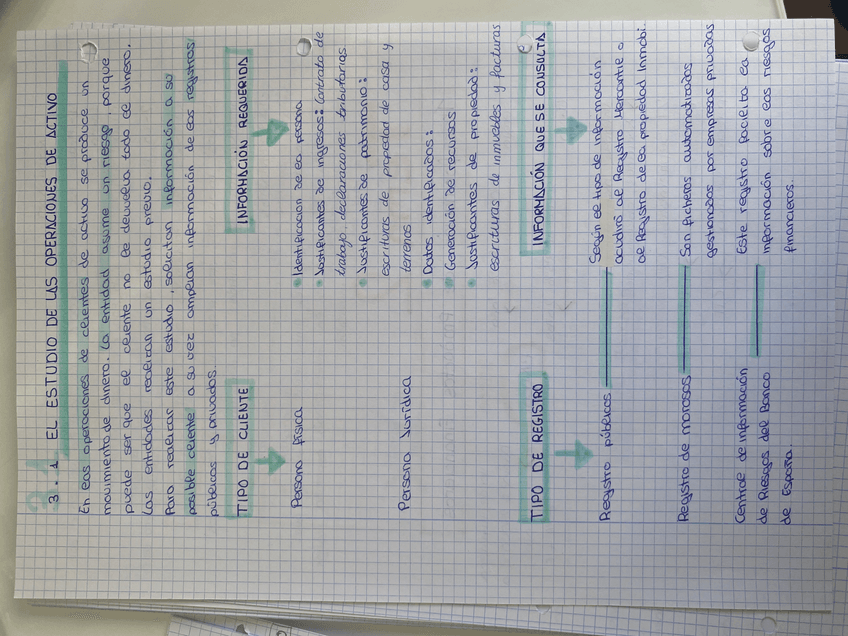 3.1 EL ESTUDIO DE LAS OPERACIONES DE ACTIVO
En las operaciones de clientes de activo se produce un
movimiento de dinero. La entidad asume un riesgo, porque
puede ser que el cliente no le devuelva todo el dinero.
Las entidades realizan un estudio previo.
Para realizar este estudio, solicitan información a su
posible cliente a su vez amplian información de los registros
públicos y privados.
TIPO DE CLIENTE
INFORMACIÓN REQUERIDA
Persona física
• Identificación de la persona
• Justificantes de ingresos: Contrato de
trabajo, declaraciones tributarias
• Justificantes de patrimonio:
escrituras de propiedad de casa y
terrenos
Persona Jurídica
• Datos identificados:
• Generación de recursos
• Justificantes de propiedad:
escrituras de inmuebles y facturas
TIPO DE REGISTRO
INFORMACIÓN QUE SE CONSULTA
Registro públicos
Según el tipo de información
acudirá al Registro Mercantil o
al Registro de la propiedad Inmobi.
Registro de morosos
Son ficheros automatizados
gestionados por empresas privadas
Central de información
de Riesgos del Banco
de España.
Este registro facilita la
información sobre los riesgos
financieros.